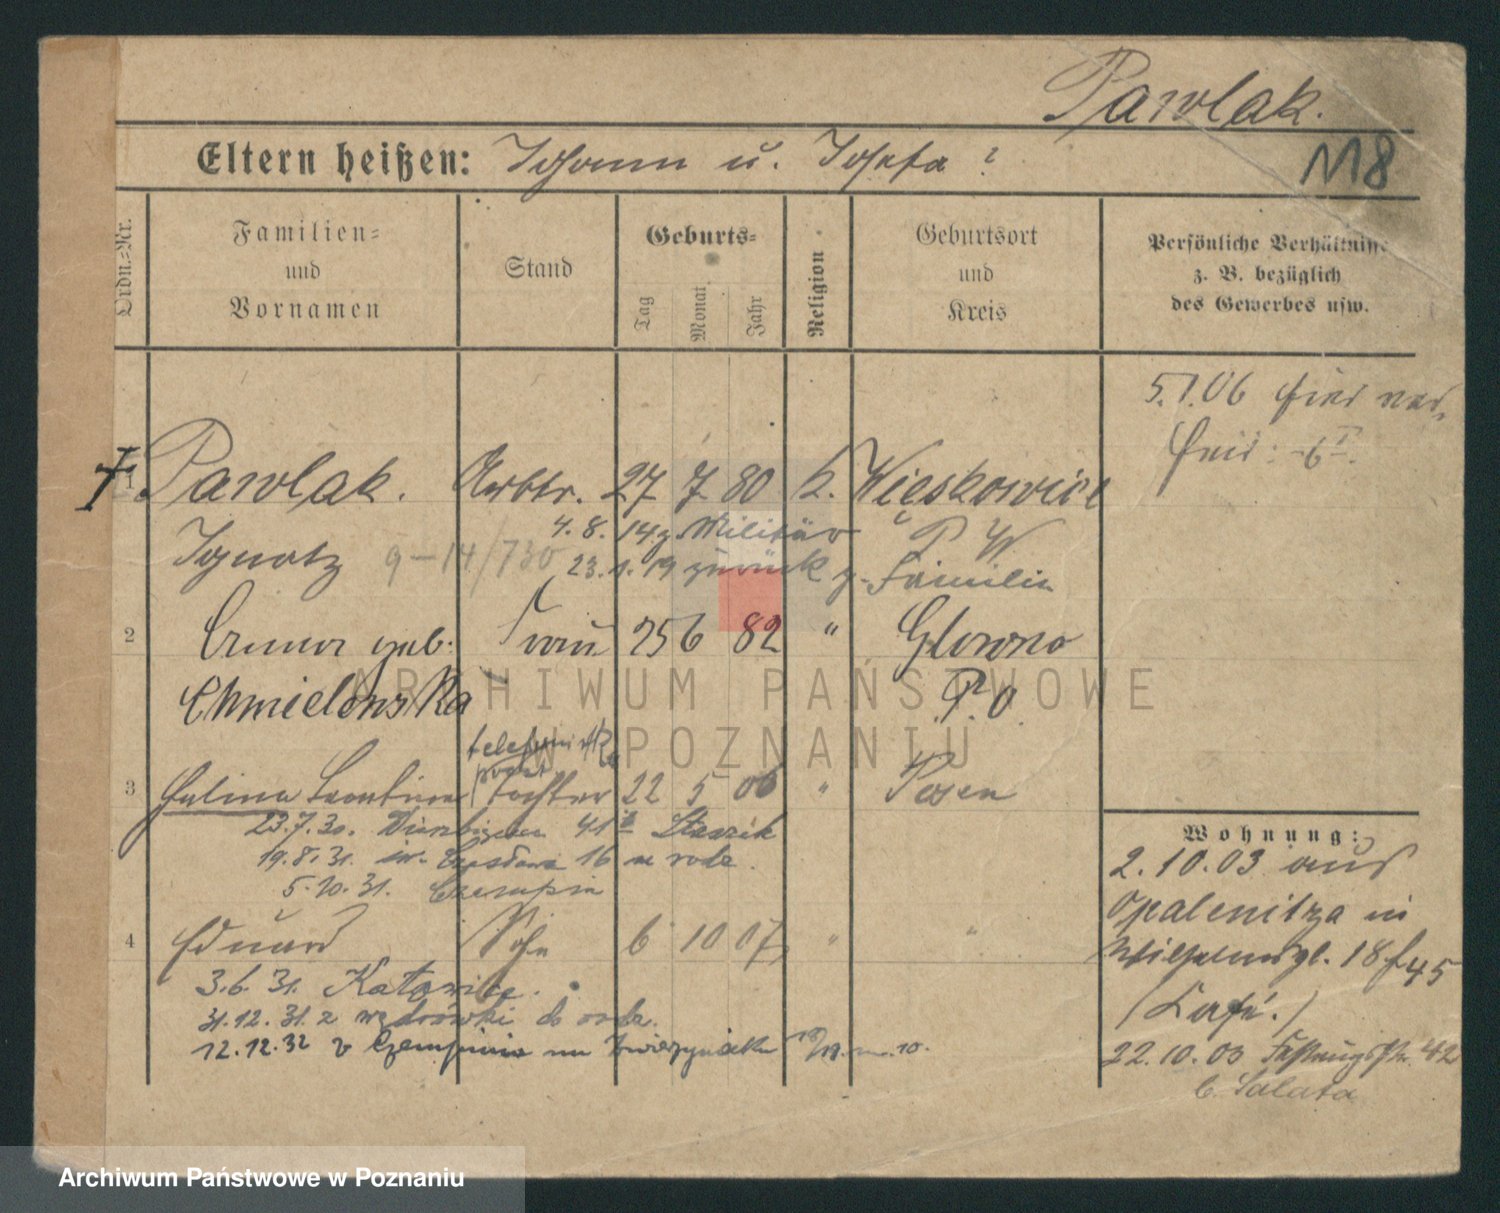 Pawlak.
Eltern heißen: Johann u. Josefa ?
118
Ordn.-Nr.
Familien-
und
Vornamen
Stand
Geburts-
Tag
Monat
Jahr
Religion
Geburtsort
und
Kreis
Persönliche Verhältnisse
z. B. bezüglich
des Gewerbes usw.
5.1.06 hier
1 Pawlak. Arbtr. 27 7 80 k. Wieskowice
4.8.14 z. Militär P W
Ignatz 9-14/730 23.1.19 zurück z. Familie
2 geb: Frau 25 6 82 " Glowno
Chmielowska P. O.
ARCHIWUM PAŃSTWOWE
W POZNANIU
3 Halina Leontine Tochter 22 5 06 " Posen
23.7.30. 41
19.8.31. 16
5.10.31. Czempin
4 Eduard Sohn 6 10 07 " "
3.6.31. Katowice.
31.12.31. z wędrówki do
12.12.32 z Czempinia na 10.
Wohnung:
2.10.03 aus
Opalenitza in
Wilhelmspl. 18
(Café.)
22.10.03 42
b. Salata
Archiwum Państwowe w Poznaniu